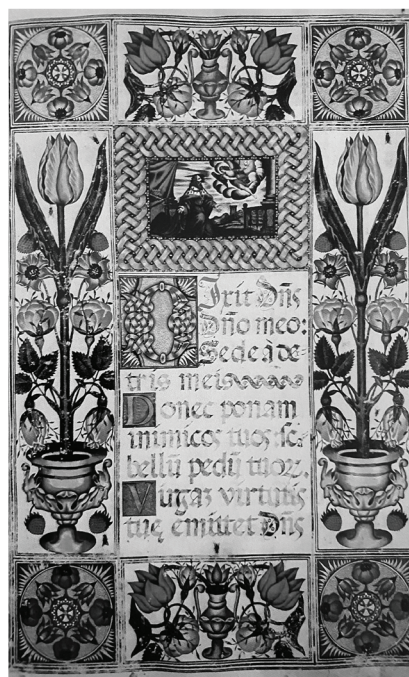 Dixit Dñs
Dño meo:
Sede à de-
tris meis
Donec ponam
inimicos tuos: sc-
bellũ pedũ tuor.
Virgaz virtutis
tuę emittet Dñs